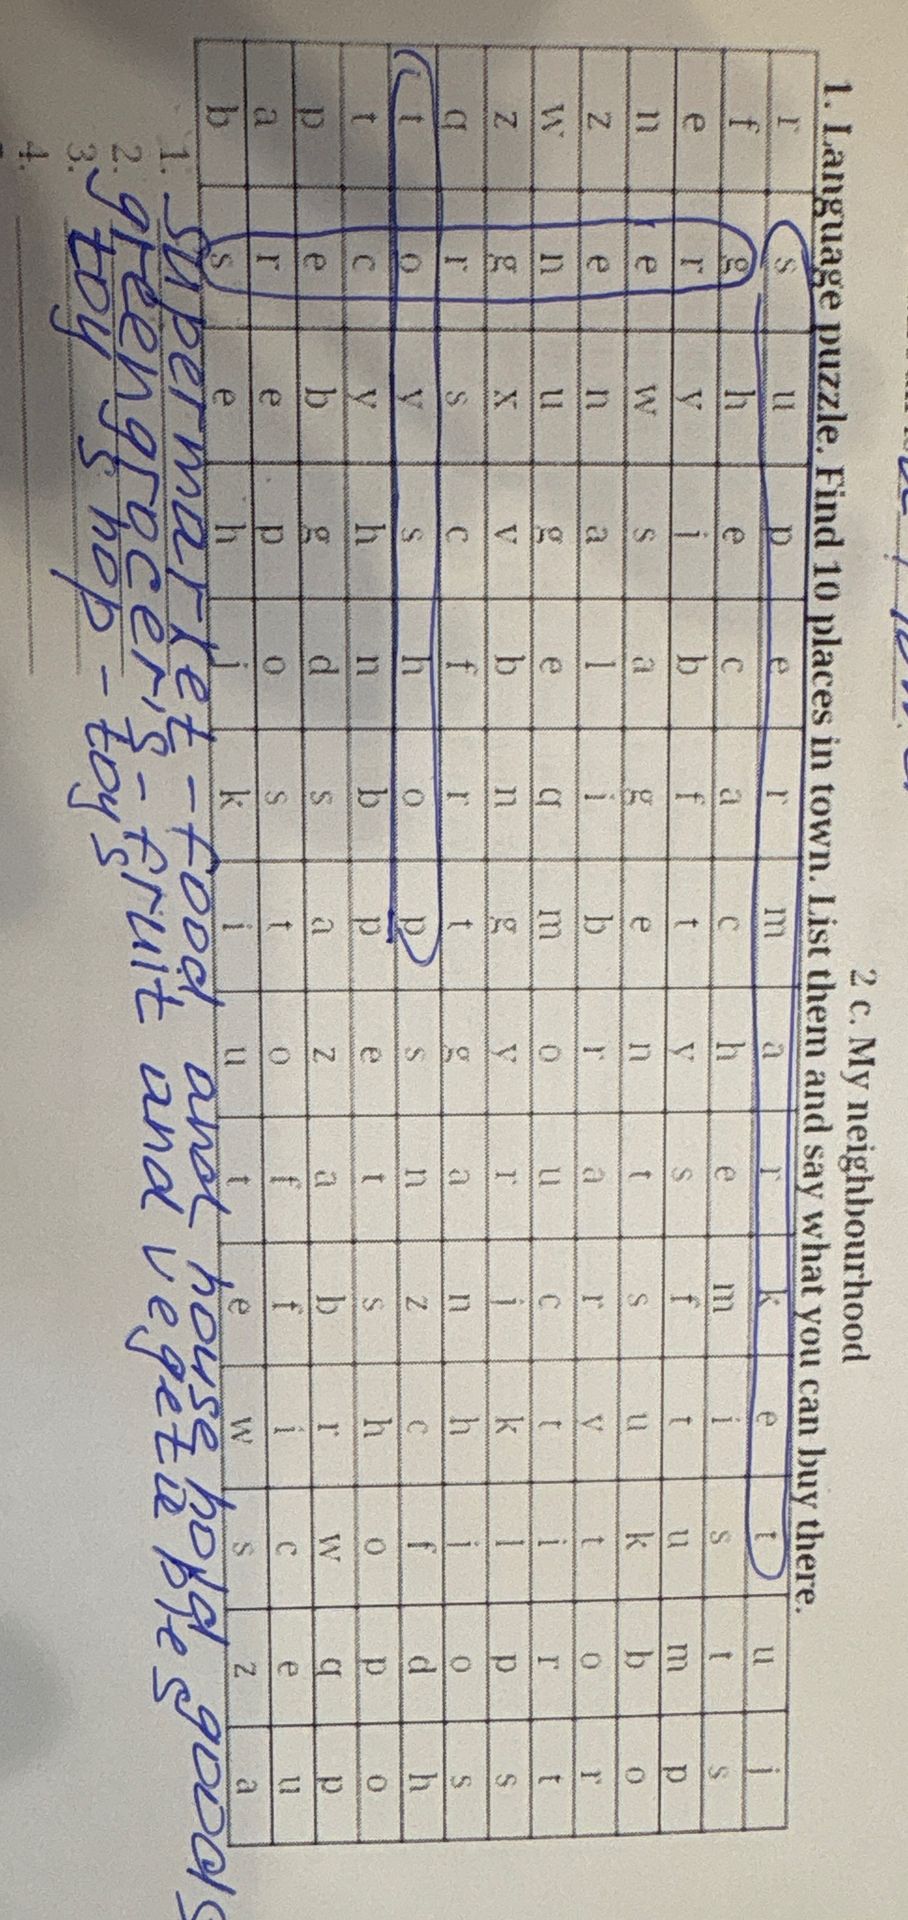 2 c. My neighbourhood
1. Language puzzle. Find 10 places in town. List them and say what you can buy there.
r s u p e r m a r k e t u j
f g h e c a c h e m i s t s
e r y i b f t y s f t u m p
n e w s a g e n t s u k b o
z e n a l i b r a r v t o r
w n u g e q m o u c t i r t
z g x v b n g y r j k l p s
q r s c f r t g a n h i o s
t o y s h o p s n z c f d h
t c y h n b p e t s h o p o
p e b g d s a z a b r w q p
a r e p o s t o f f i c e u
b s e h j k i u t e w s z a
1. supermarket - food and house hold goods
2. greengrocer's - fruit and vegetables
3. toy shop - toys
4.